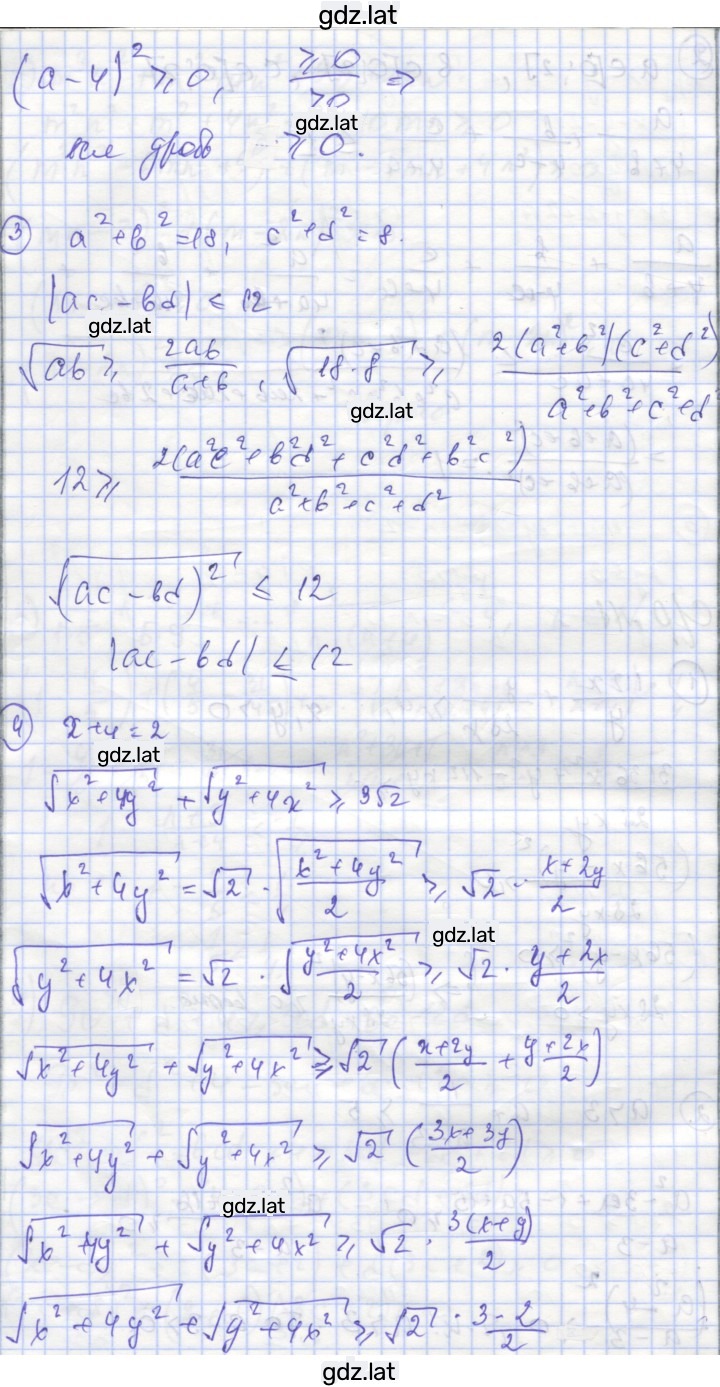 gdz.lat
(a-4)² ≥ 0, ≥0/>0 ⇒
gdz.lat
≥ 0.
③ a²+b²=18, c²+d²=8.
|ac-bd| ≤ 12
gdz.lat
√ab ≥ 2ab/(a+b), √18·8 ≥ 2(a²+b²)(c²+d²)/(a²+b²+c²+d²)
gdz.lat
12 ≥ 2(a²c²+b²d²+c²d²+b²c²)/(a²+b²+c²+d²)
√(ac-bd)² ≤ 12
|ac-bd| ≤ 12
④ x+y=2
gdz.lat
√(x²+4y²) + √(y²+4x²) ≥ 3√2
√(x²+4y²) = √2 · √((x²+4y²)/2) ≥ √2 · (x+2y)/2
gdz.lat
√(y²+4x²) = √2 · √((y²+4x²)/2) ≥ √2 · (y+2x)/2
√(x²+4y²) + √(y²+4x²) ≥ √2 ((x+2y)/2 + (y+2x)/2)
√(x²+4y²) + √(y²+4x²) ≥ √2 ((3x+3y)/2)
gdz.lat
√(x²+4y²) + √(y²+4x²) ≥ √2 · 3(x+y)/2
√(x²+4y²) + √(y²+4x²) ≥ √2 · 3·2/2
gdz.lat